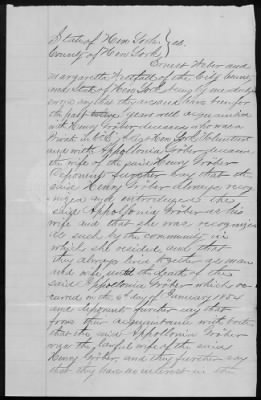 State of New York } ss.
County of New York }
Ernest Weber and
Margaretta of the City County
and State of New York being by me duly
sworn say that they are and have been for
the past years well acquainted
with Henry Gröber deceased who was a
Private in Co. Regt New York Volunteers
and with Appollonia Gröber deceased
the wife of the said Henry Gröber
Deponents further say that the
said Henry Gröber always recog
nized and introduced the
said Appollonia Gröber as his
wife and that she was recognized
as such by the community in
which she resided and that
they always lived together as man
and wife, until the death of the
said Appollonia Gröber which oc
curred on the 6th day of January 1854
and deponents further say that
from their acquaintance with both
that the said Appollonia Gröber
was the lawful wife of the said
Henry Gröber, and they further say
that they have no interest in the